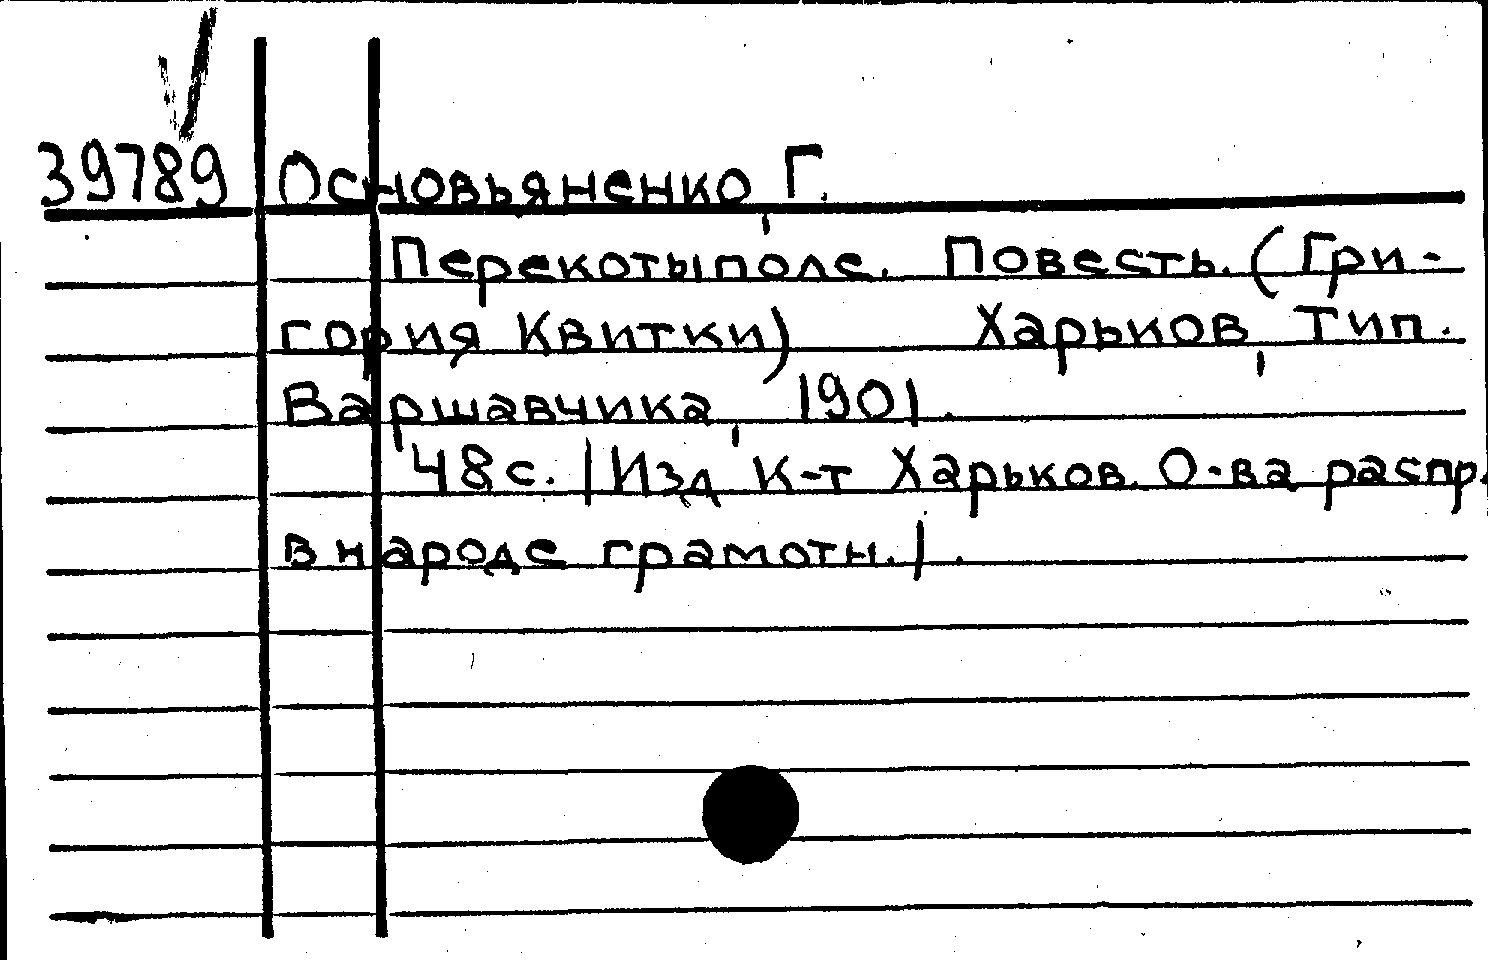 39789 Основьяненко, Г.
Перекотыполе. Повесть. (Гри-
гория Квитки) Харьков, Тип.
Варшавчика, 1901.
48с. |Изд К-т Харьков. О-ва распр.
в народе грамотн.|.